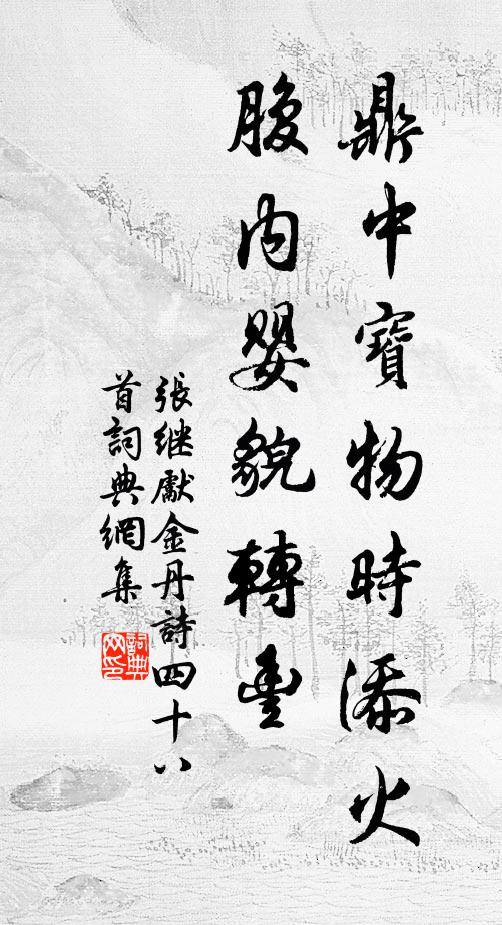 鼎中寶物時添火
腹內嬰貌轉豊
張继獻金丹詩四十八
首詞典網集
詞典網印